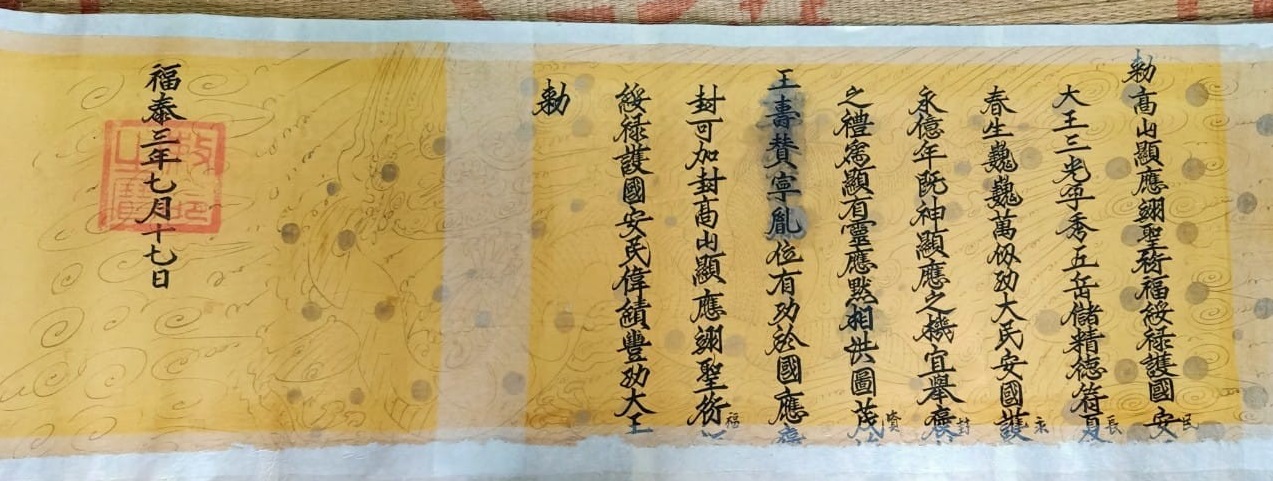 勅高山顯應翊聖衍福綏禄護國安民
大王三光孕秀五岳儲精德符夏長
春生巍巍萬仭功大民安國護永
永億年既神顯應之機宜舉褒封
之禮寔顯有靈應默相洪圖茂賛
王壽賛寧胤位有功於國應
封可加封高山顯應翊聖衍福
綏禄護國安民偉績豐功大王
勅
福泰三年七月十七日
敕命之寶